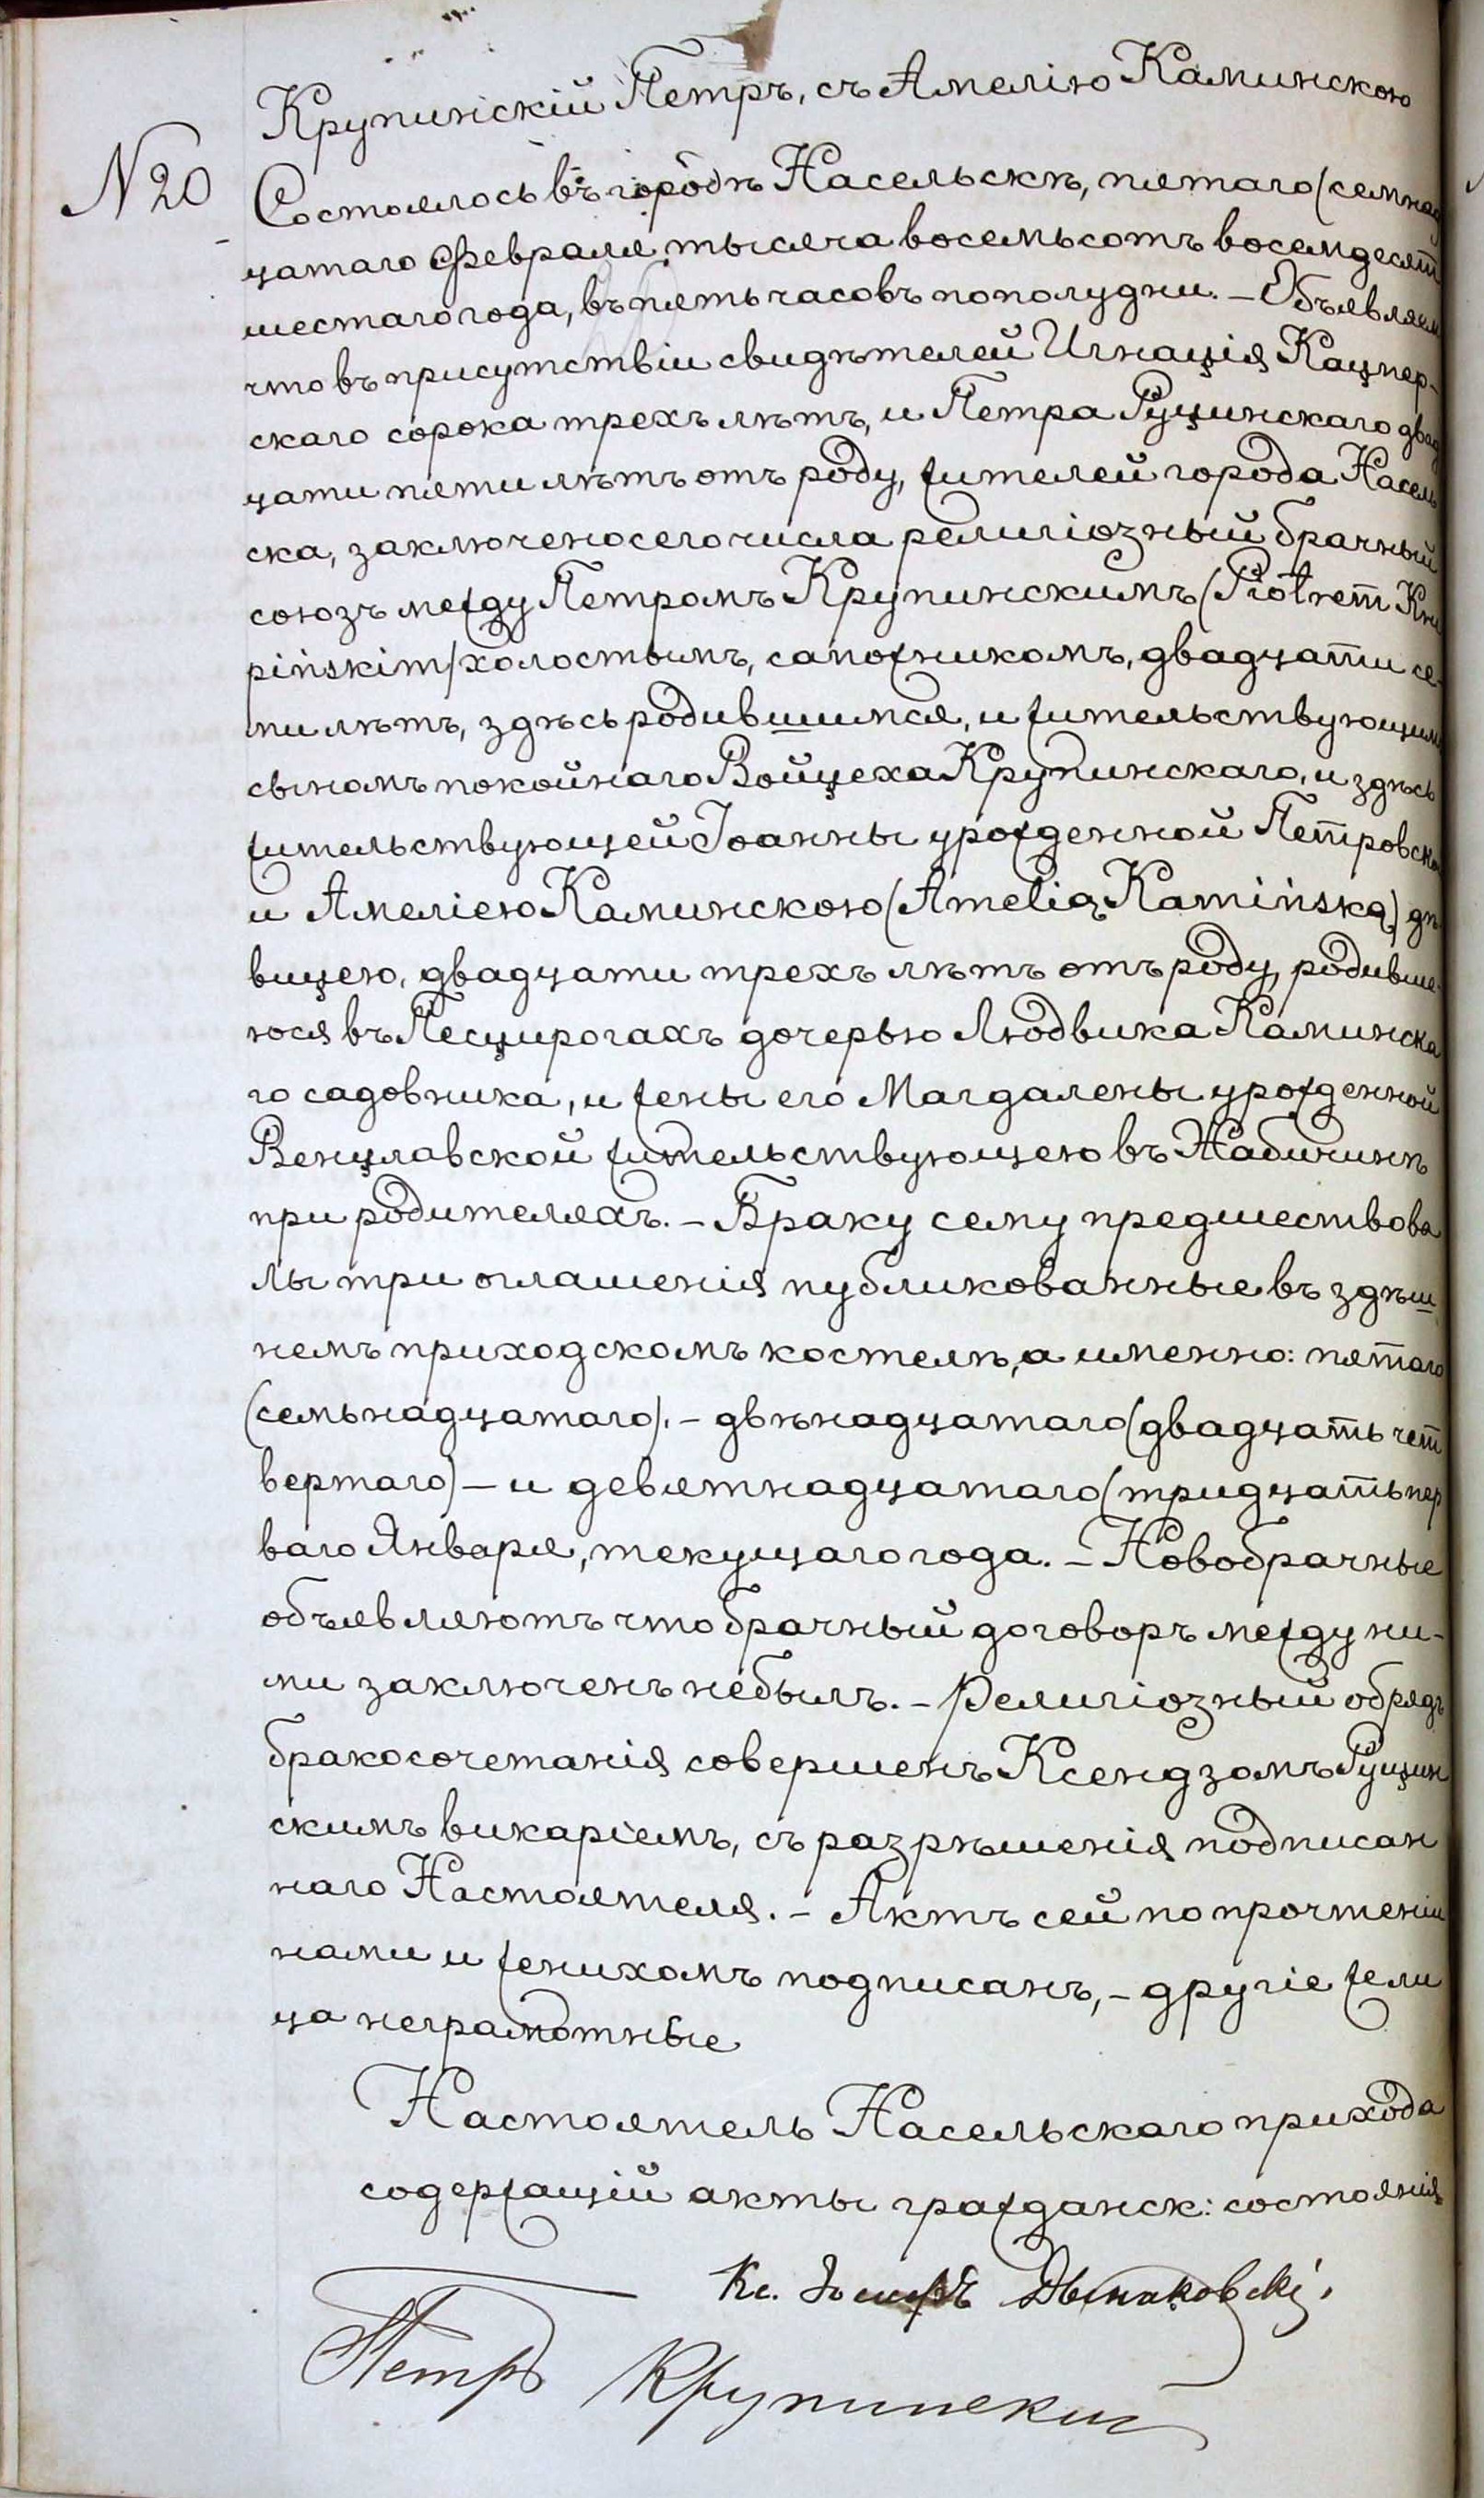 Крупинскій Петръ, съ Амелію Каминскою
N 20
Состоялось въ городѣ Насельскѣ, пятаго (семнад
цатаго Февраля тысяча восемьсотъ восемдесят
шестаго года, въ пять часовъ пополудни. – Объявляем
что въ присутствіи свидѣтелей Игнація Кацпер-
скаго сорока трехъ лѣтъ, и Петра Руцинскаго двад
цати пяти лѣтъ отъ роду, жителей города Насель
ска, заключено сего числа религіозный брачный
союзъ между Петромъ Крупинскимъ (Piotrem Kru
pińskim) холостымъ, сапожникомъ, двадцати се-
ми лѣтъ, здѣсь родившимся, и жительствующимъ
сыномъ покойнаго Войцеха Крупинскаго, и здѣсь
жительствующей Іоанны урожденной Петровской
и Амеліею Каминскою (Amelią Kamińską) дѣ
вицею, двадцати трехъ лѣтъ отъ роду, родивше-
юся въ Песцирогахъ дочерью Людвика Каминска
го садовника, и жены его Магдалены урожденной
Венцлавской жительствующею въ Жабичинѣ
при родителяхъ. – Браку сему предшествова
лы три оглашенія публикованные въ здѣш
немъ приходскомъ костелѣ, а именно: пятаго
(семьнадцатаго). – двѣнадцатаго (двадцать чет
вертаго) – и девятнадцатаго (тридцать пер
ваго Января, текущаго года. – Новобрачные
объявляютъ что брачный договоръ между ни-
ми заключенъ небылъ. – Религіозный обрядъ
бракосочетанія совершенъ Ксендзомъ Руцин
скимъ викаріемъ, съ разрѣшенія подписан
наго Настоятеля. – Актъ сей по прочтеніи
нами и женихомъ подписанъ, – другіе же ли
ца неграмотные
Настоятель Насельскаго прихода
содержащій акты гражданск: состоянія
Кс.
Петръ Крупинскій